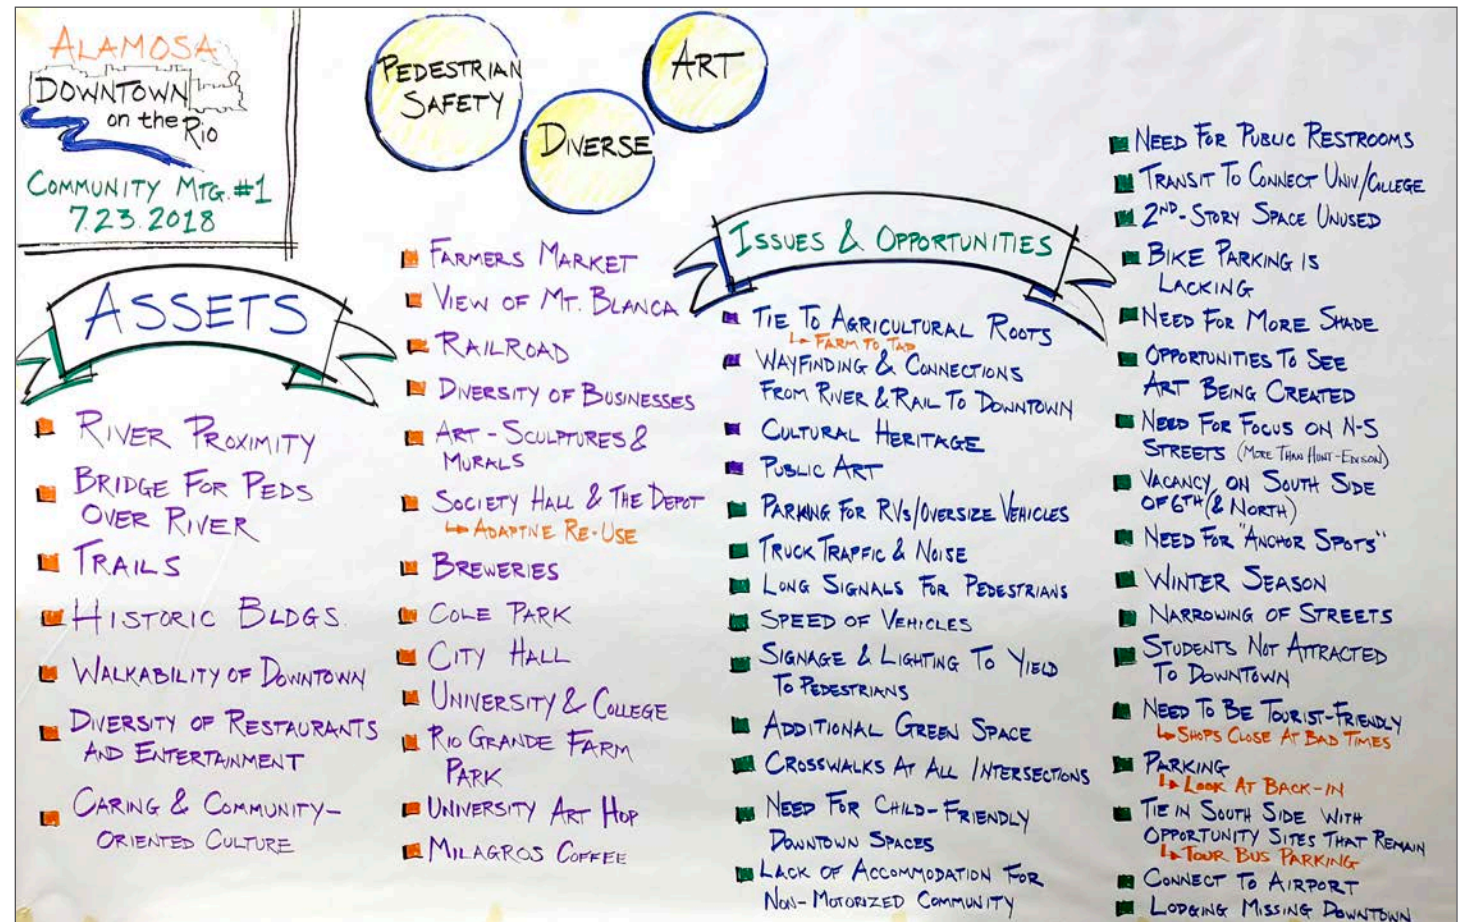 ALAMOSA
DOWNTOWN
on the Rio
COMMUNITY MTG. #1
7.23.2018
PEDESTRIAN
SAFETY
DIVERSE
ART
ASSETS
RIVER PROXIMITY
BRIDGE FOR PEDS
OVER RIVER
TRAILS
HISTORIC BLDGS.
WALKABILITY OF DOWNTOWN
DIVERSITY OF RESTAURANTS
AND ENTERTAINMENT
CARING & COMMUNITY-
ORIENTED CULTURE
FARMERS MARKET
VIEW OF MT. BLANCA
RAILROAD
DIVERSITY OF BUSINESSES
ART - SCULPTURES &
MURALS
SOCIETY HALL & THE DEPOT
ADAPTIVE RE-USE
BREWERIES
COLE PARK
CITY HALL
UNIVERSITY & COLLEGE
RIO GRANDE FARM
PARK
UNIVERSITY ART HOP
MILAGROS COFFEE
ISSUES & OPPORTUNITIES
TIE TO AGRICULTURAL ROOTS
FARM TO TAP
WAYFINDING & CONNECTIONS
FROM RIVER & RAIL TO DOWNTOWN
CULTURAL HERITAGE
PUBLIC ART
PARKING FOR RVs/OVERSIZE VEHICLES
TRUCK TRAFFIC & NOISE
LONG SIGNALS FOR PEDESTRIANS
SPEED OF VEHICLES
SIGNAGE & LIGHTING TO YIELD
TO PEDESTRIANS
ADDITIONAL GREEN SPACE
CROSSWALKS AT ALL INTERSECTIONS
NEED FOR CHILD-FRIENDLY
DOWNTOWN SPACES
LACK OF ACCOMMODATION FOR
NON-MOTORIZED COMMUNITY
NEED FOR PUBLIC RESTROOMS
TRANSIT TO CONNECT UNIV./COLLEGE
2ND-STORY SPACE UNUSED
BIKE PARKING IS
LACKING
NEED FOR MORE SHADE
OPPORTUNITIES TO SEE
ART BEING CREATED
NEED FOR FOCUS ON N-S
STREETS (MORE THAN HUNT-EDISON)
VACANCY ON SOUTH SIDE
OF 6TH (& NORTH)
NEED FOR "ANCHOR SPOTS"
WINTER SEASON
NARROWING OF STREETS
STUDENTS NOT ATTRACTED
TO DOWNTOWN
NEED TO BE TOURIST-FRIENDLY
SHOPS CLOSE AT BAD TIMES
PARKING
LOOK AT BACK-IN
TIE IN SOUTH SIDE WITH
OPPORTUNITY SITES THAT REMAIN
TOUR BUS PARKING
CONNECT TO AIRPORT
LODGING MISSING DOWNTOWN